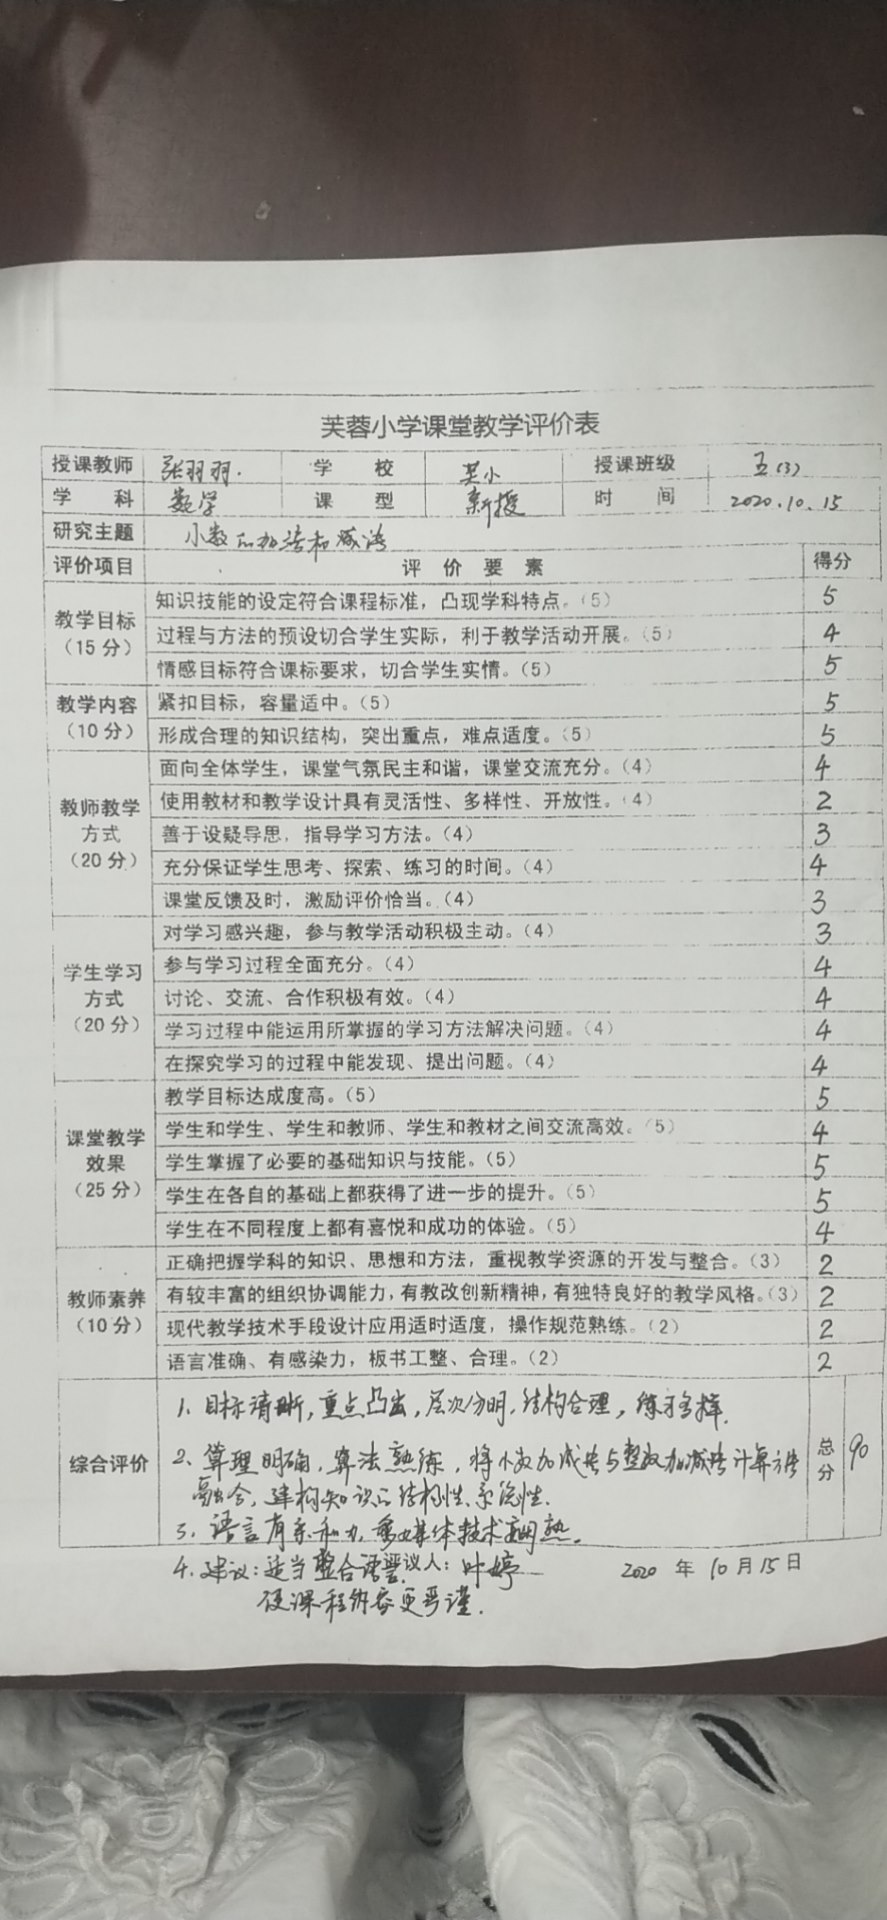 芙蓉小学课堂教学评价表
授课教师 张羽羽. 学校 芙小 授课班级 五(3)
学科 数学 课型 新授 时间 2020.10.15
研究主题 小数的加法和减法
评价项目 评价要素 得分
教学目标（15分）
知识技能的设定符合课程标准，凸现学科特点。（5） 5
过程与方法的预设切合学生实际，利于教学活动开展。（5） 4
情感目标符合课标要求，切合学生实情。（5） 5
教学内容（10分）
紧扣目标，容量适中。（5） 5
形成合理的知识结构，突出重点，难点适度。（5） 5
教师教学方式（20分）
面向全体学生，课堂气氛民主和谐，课堂交流充分。（4） 4
使用教材和教学设计具有灵活性、多样性、开放性。（4） 2
善于设疑导思，指导学习方法。（4） 3
充分保证学生思考、探索、练习的时间。（4） 4
课堂反馈及时，激励评价恰当。（4） 3
学生学习方式（20分）
对学习感兴趣，参与教学活动积极主动。（4） 3
参与学习过程全面充分。（4） 4
讨论、交流、合作积极有效。（4） 4
学习过程中能运用所掌握的学习方法解决问题。（4） 4
在探究学习的过程中能发现、提出问题。（4） 4
课堂教学效果（25分）
教学目标达成度高。（5） 5
学生和学生、学生和教师、学生和教材之间交流高效。（5） 4
学生掌握了必要的基础知识与技能。（5） 5
学生在各自的基础上都获得了进一步的提升。（5） 5
学生在不同程度上都有喜悦和成功的体验。（5） 4
教师素养（10分）
正确把握学科的知识、思想和方法，重视教学资源的开发与整合。（3） 2
有较丰富的组织协调能力，有教改创新精神，有独特良好的教学风格。（3） 2
现代教学技术手段设计应用适时适度，操作规范熟练。（2） 2
语言准确、有感染力，板书工整、合理。（2） 2
综合评价
1. 目标清晰，重点凸出，层次分明，结构合理，练习多样.
2、算理明确，算法熟练，将小数加减法与整数加减法计算方法
融合，建构知识的结构性、系统性.
3、语言有亲和力，多媒体技术娴熟。
总分 90
4. 建议：适当整合语言 评议人：叶婷 2020年10月15日
使课程内容更严谨.